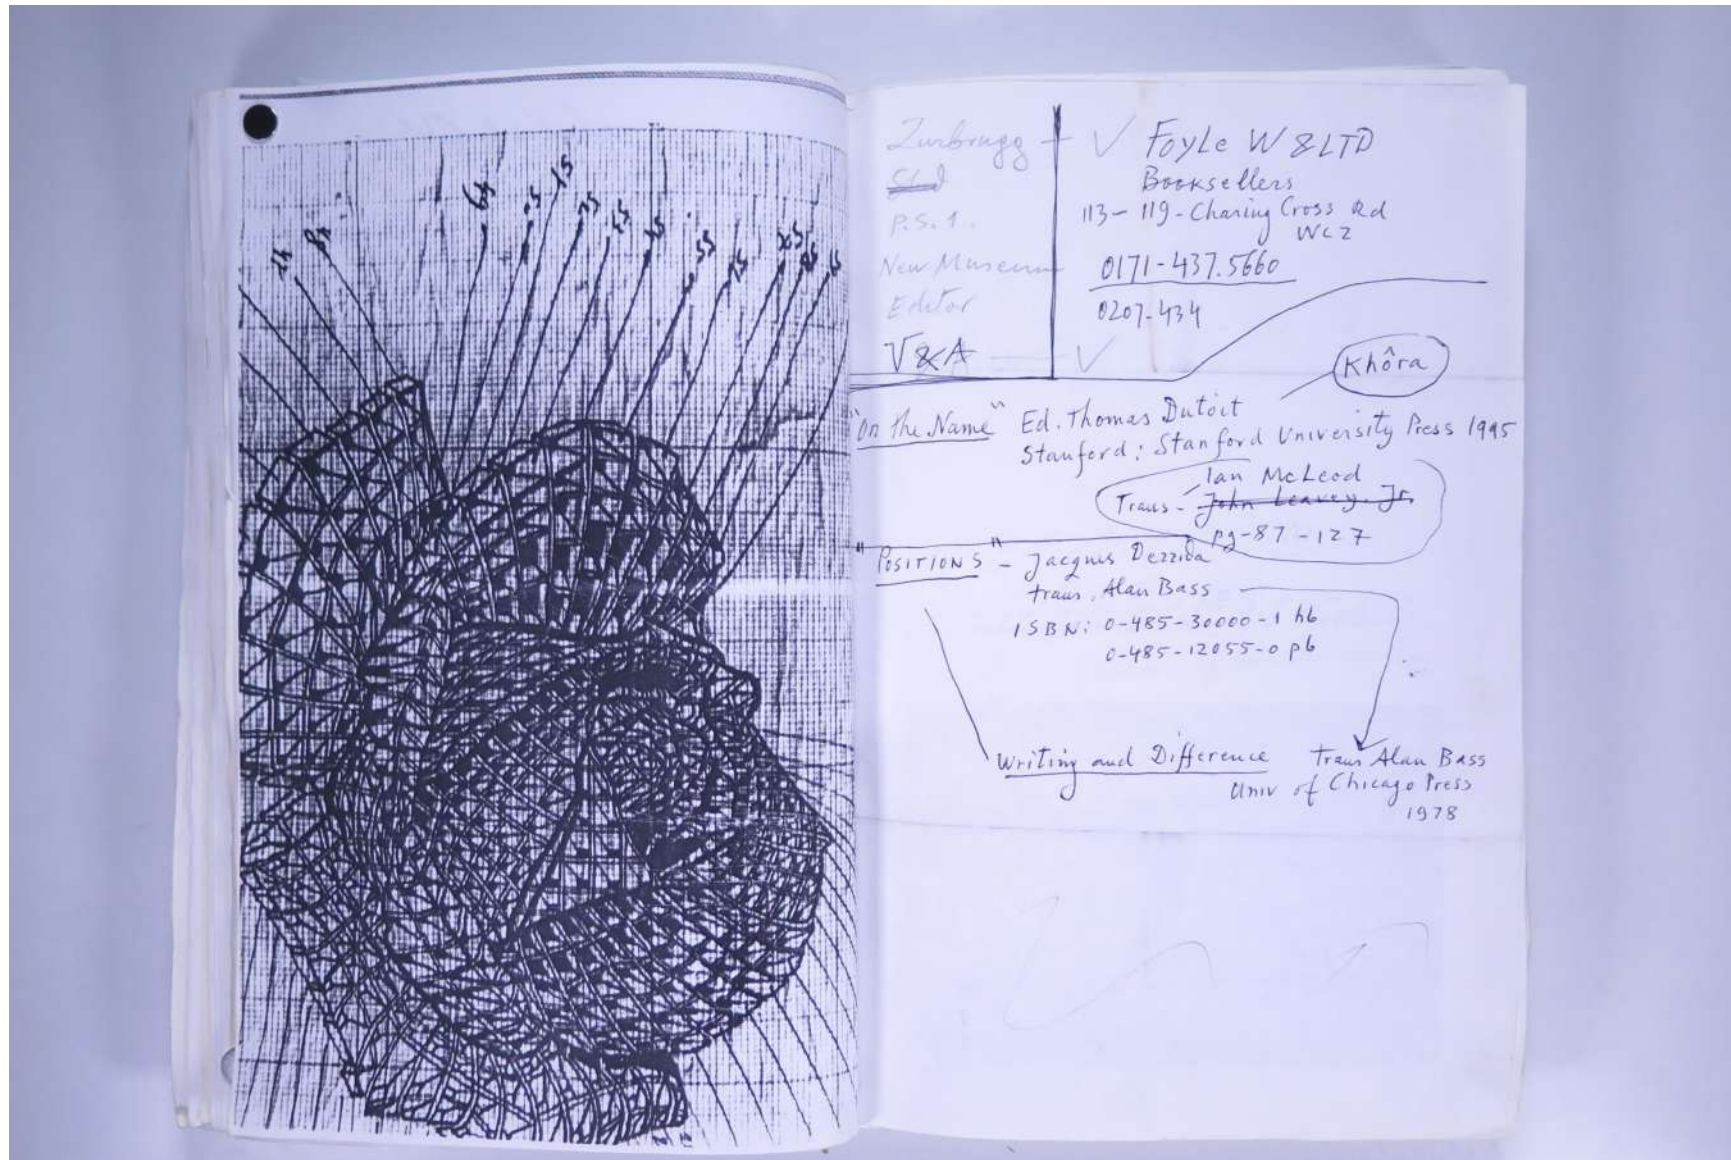 Zurbrugg
P.S.1.
New Museum
Editor
V&A
Foyle W & LTD
Booksellers
113-119-Charing Cross Rd
WC2
0171-437.5660
0207-434
Khôra
"On the Name" Ed. Thomas Dutoit
Stanford: Stanford University Press 1995
Ian McLeod
Trans - John Leavey. Jr.
pg-87-127
"POSITIONS" - Jacques Derrida
trans. Alan Bass
ISBN: 0-485-30000-1 hb
0-485-12055-0 pb
Writing and Difference Trans Alan Bass
Univ of Chicago Press
1978